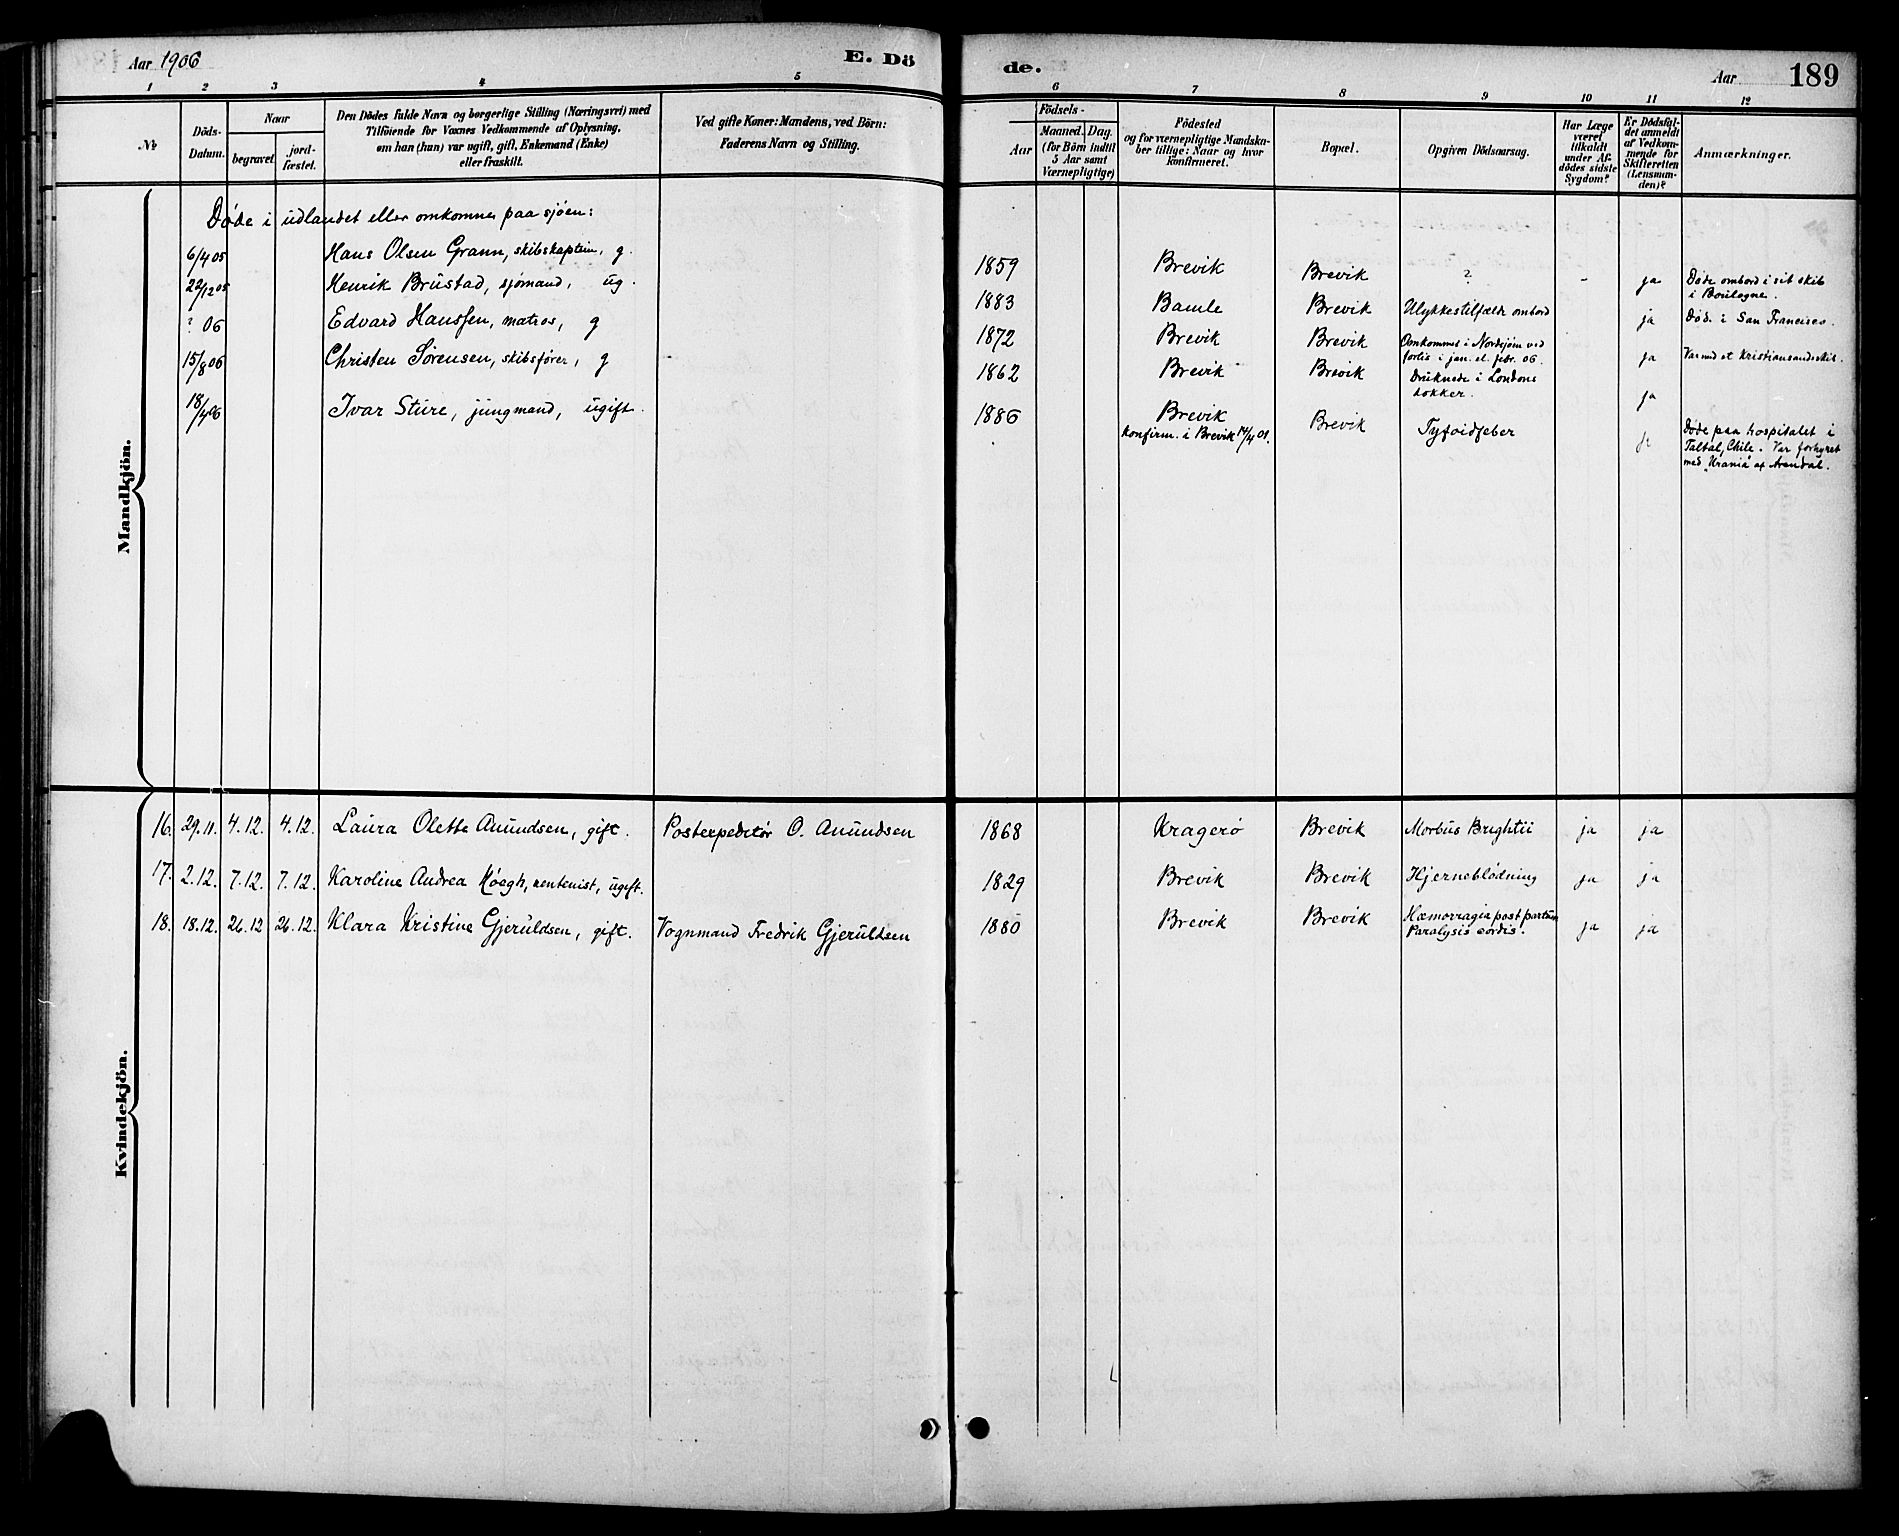 Aar 1906
E. Dö
de.
Aar
189
1 2 3 4 5 6 7 8 9 10 11 12
No
Döds-
Datum.
Naar
begravet
jord-
fæstet.
Den Dödes fulde Navn og borgerlige Stilling (Næringsvei) med
Tilföiende for Voxnes Vedkommende af Oplysning,
om han (hun) var ugift, gift, Enkemand (Enke)
eller fraskilt.
Ved gifte Koner: Mandens, ved Börn:
Faderens Navn og Stilling.
Födsels-
Aar
Maaned. Dag.
(for Börn indtil
5 Aar samt
Værnepligtige)
Födested
og for værnepligtige Mandska-
ber tillige: Naar og hvor
konfirmeret.
Bopæl.
Opgiven Dödsaarsag.
Har Læge
været
tilkaldt
under Af-
dödes sidste
Sygdom?
Er Dödsfal-
det anmeldt
af Vedkom-
mende for
Skifteretten
(Lensman-
den)?
Anmærkninger.
Mandkjön.
Døde i udlandet eller omkomne paa sjøen:
6/4 05 Hans Olsen Grann, skibskaptein, g. 1859 Brevik Brevik ? - ja Døde ombord i sit skib
i Boulogne.
22/12 05 Henrik Brustad, sjømand, ug. 1883 Bamle Brevik Ulykkestilfælde ombord ja Død i San Francisco.
? 06 Edvard Hanssen, matros, g 1872 Brevik Brevik Omkommet i Nordsjøen ved
forlis i jan. el. febr. 06. ja Var med et Kristiansandsskib.
15/8 06 Christen Sørensen, skibsfører, g 1862 Brevik Brevik Druknede i Londons
dokker. ja
18/4 06 Ivar Sture, jungmand, ugift. 1886 Brevik
konfirm. i Brevik 14/4 01. Brevik Tyfoidfeber ja Døde paa hospitalet i
Taltal, Chile. Var forhyret
med "Urania" af Arendal.
Kvindekjön.
16. 29.11. 4.12. 4.12. Laura Olette Anundsen, gift. Postexpeditør O. Anundsen 1868 Kragerø Brevik Morbus Brightii ja ja
17. 2.12. 7.12. 7.12. Karoline Andrea Høegh, rentenist, ugift. 1829 Brevik Brevik Hjerneblødning ja ja
18. 18.12. 26.12 26.12. Klara Kristine Gjeruldsen, gift. Vognmand Fredrik Gjeruldsen 1880 Brevik Brevik Hæmorragia post partum
Paralysis cordis. ja ja